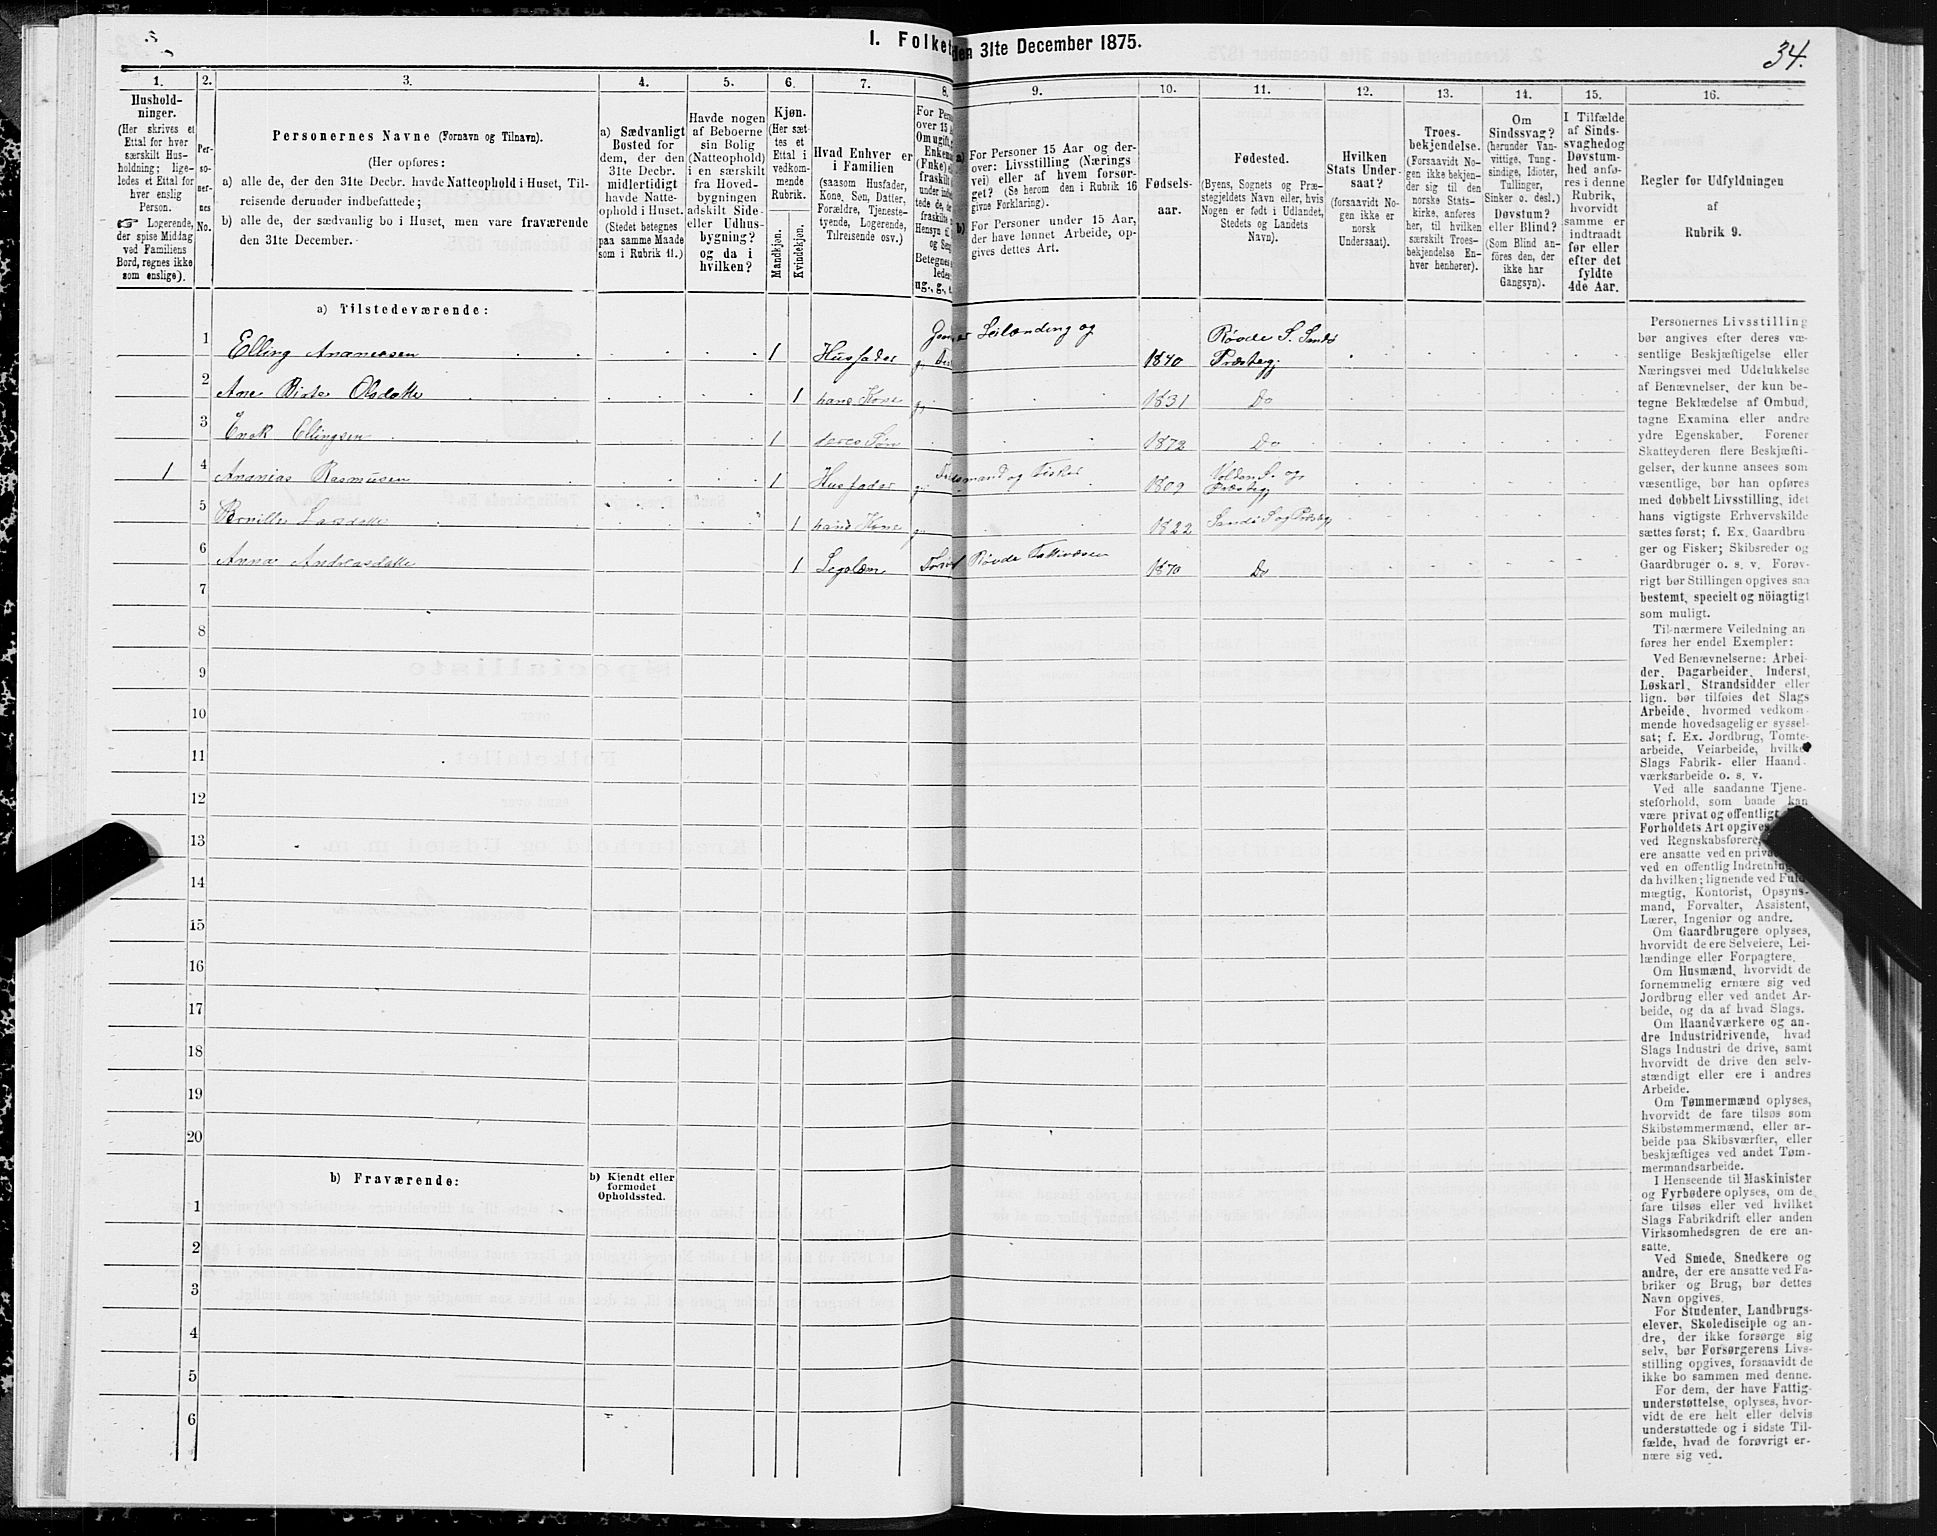 34.
I. Folket
den 31te December 1875.
1.
2.
3.
4.
5.
6.
7.
8.
9.
10.
11.
12.
13.
14.
15.
16.
Hushold-
ninger.
(Her skrives et
Ettal for hver
særskilt Hus-
holdning; lige-
ledes et Ettal for
hver enslig
Person.
☞ Logerende,
der spise Middag
ved Familiens
Bord, regnes ikke
som enslige).
Per-
so-
ner-
nes
No.
Personernes Navne (Fornavn og Tilnavn).
(Her opføres:
a) alle de, der den 31te Decbr. havde Natteophold i Huset, Til-
reisende derunder indbefattede;
b) alle de, der sædvanlig bo i Huset, men vare fraværende
den 31te December.
a) Sædvanligt
Bosted for
dem, der den
31te Decbr.
midlertidigt
havde Natte-
ophold i Huset.
(Stedet betegnes
paa samme Maade
som i Rubrik 11.)
Havde nogen
af Beboerne
sin Bolig
(Natteophold)
i en særskilt
fra Hoved-
bygningen
adskilt Side-
eller Udhus-
bygning?
og da i
hvilken?
Kjøn.
(Her sæt-
tes et
Ettal i
vedkom-
mende
Rubrik.
Mandkjøn.
Kvindekjøn.
Hvad Enhver er
i Familien
(saasom Husfader,
Kone, Søn, Datter,
Forældre, Tjeneste-
tyende, Logerende,
Tilreisende osv.)
For Pers
over 15 A
Om ugift,
Enkema
(Enke) e
fraskilt
under indbe
tede de, de
fraskilte
Hensyn ti
og Sen
Betegnes
ledes
ug., g., e
a)
For Personer 15 Aar og der-
over: Livsstilling (Nærings
vei) eller af hvem forsør-
get? (Se herom den i Rubrik 16
givne Forklaring).
b)
For Personer under 15 Aar,
der have lønnet Arbeide, op-
gives dettes Art.
Fødsels-
aar.
Fødested.
(Byens, Sognets og Præ-
stegjeldets Navn eller, hvis
Nogen er født i Udlandet,
Stedets og Landets
Navn).
Hvilken
Stats Under-
saat?
(forsaavidt No-
gen ikke er
norsk
Undersaat).
Troes-
bekjendelse.
(Forsaavidt No-
gen ikke bekjen-
der sig til den
norske Stats-
kirke, anføres
her, til hvilken
særskilt Troes-
bekjendelse En-
hver henhører).
Om
Sindssvag?
(herunder Van-
vittige, Tung-
sindige, Idioter,
Tullinger,
Sinker o. desl.)
Døvstum?
eller Blind?
(Som Blind an-
føres den, der
ikke har
Gangsyn).
I Tilfælde
af Sinds-
svaghed og
Døvstum-
hed anfø-
res i denne
Rubrik,
hvorvidt
samme er
indtraadt
før eller
efter det
fyldte
4de Aar.
Regler for Udfyldningen
af
Rubrik 9.
a) Tilstedeværende:
1 Elling Ananiesen 1 Husfader g, Seilænding og 1840 Røvde S. Sandø Præsteg,
2 Ane Birte Olsdatter 1 hans Kone g, 1831 Do
3 Enok Ellingsen 1 deres Søn 1872 Do
1 4 Ananias Rasmusen 1 Husfader g, og Fisker 1809 Volden S. og Præsteg,
5 Pernille Larsdatter 1 hans Kone g, 1822 Sandø S. og Præsteg
6 Anna Andreasdatter 1 Legslæm Røvde Fattivæsen 1870 Do
7
8
9
10
11
12
13
14
15
16
17
18
19
20
b) Fraværende:
b) Kjendt eller
formodet
Opholdssted.
1
2
3
4
5
6
Personernes Livsstilling
bør angives efter deres væ-
sentlige Beskjæftigelse eller
Næringsvei med Udelukkelse
af Benævnelser, der kun be-
tegne Beklædelse af Ombud,
tagne Examina eller andre
ydre Egenskaber. Forener
Skatteyderen flere Beskjæfti-
gelser, der kunne ansees som
væsentlige, bør han opføres
med dobbelt Livsstilling, idet
hans vigtigste Erhvervskilde
sættes først; f. Ex. Gaardbru-
ger og Fisker; Skibsreder og
Gaardbruger o. s. v. Forøv-
rigt bør Stillingen opgives saa
bestemt, specielt og nöiagtigt
som muligt.
Til nærmere Veiledning an
føres her endel Exempler:
Ved Benævnelserne: Arbei-
der, Dagarbeider, Inderst,
Løskarl, Strandsidder eller
lign. bør tilføies det Slags
Arbeide, hvormed vedkom-
mende hovedsagelig er syssel-
sat; f. Ex. Jordbrug, Tomte-
arbeide, Veiarbeide, hvilket
Slags Fabrik- eller Haand-
værksarbeide o. s. v.
Ved alle saadanne Tjene-
steforhold, som baade kan
være privat og offentligt,
Forholdets Art opgives
ved Regnskabsførere,
ere ansatte ved en priva
ved en offentlig Indretning
da hvilken; lignende ved Fuld-
mægtig, Kontorist, Opsyns-
mand, Forvalter, Assistent,
Lærer, Ingeniør og andre.
Om Gaardbrugere oplyses,
hvorvidt de ere Selveiere, Lei-
lændinge eller Forpagtere.
Om Husmænd, hvorvidt de
fornemmelig ernære sig ved
Jordbrug eller ved andet Ar-
beide, og da af hvad Slags.
Om Haandværkere og an-
dre Industridrivende, hvad
Slags Industri de drive, samt
hvorvidt de drive den selv-
stændigt eller ere i andres
Arbeide.
Om Tømmermænd oplyses,
hvorvidt de fare tilsøs som
Skibstømmermænd, eller ar-
beide paa Skibsværfter, eller
beskjæftiges ved andet Tøm-
mermandsarbeide.
I Henseende til Maskinister
og Fyrbødere oplyses, om de
fare tilsøs eller ved hvilket
Slags Fabrikdrift eller anden
Virksomhedsgren de ere an-
satte.
Ved Smede, Snedkere og
andre, der ere ansatte ved Fa-
briker og Brug, bør dettes
Navn opgives.
For Studenter, Landbrugs-
elever, Skoledisciple og an-
dre, der ikke forsørge sig
selv, bør Forsørgerens Livs-
stilling opgives, forsaavidt de
ikke bo sammen med denne.
For dem, der have Fattig-
understøttelse, oplyses, hvor-
vidt de ere helt eller delvis
understøttede og i sidste Til-
fælde, hvad de forøvrigt er-
nære sig ved.